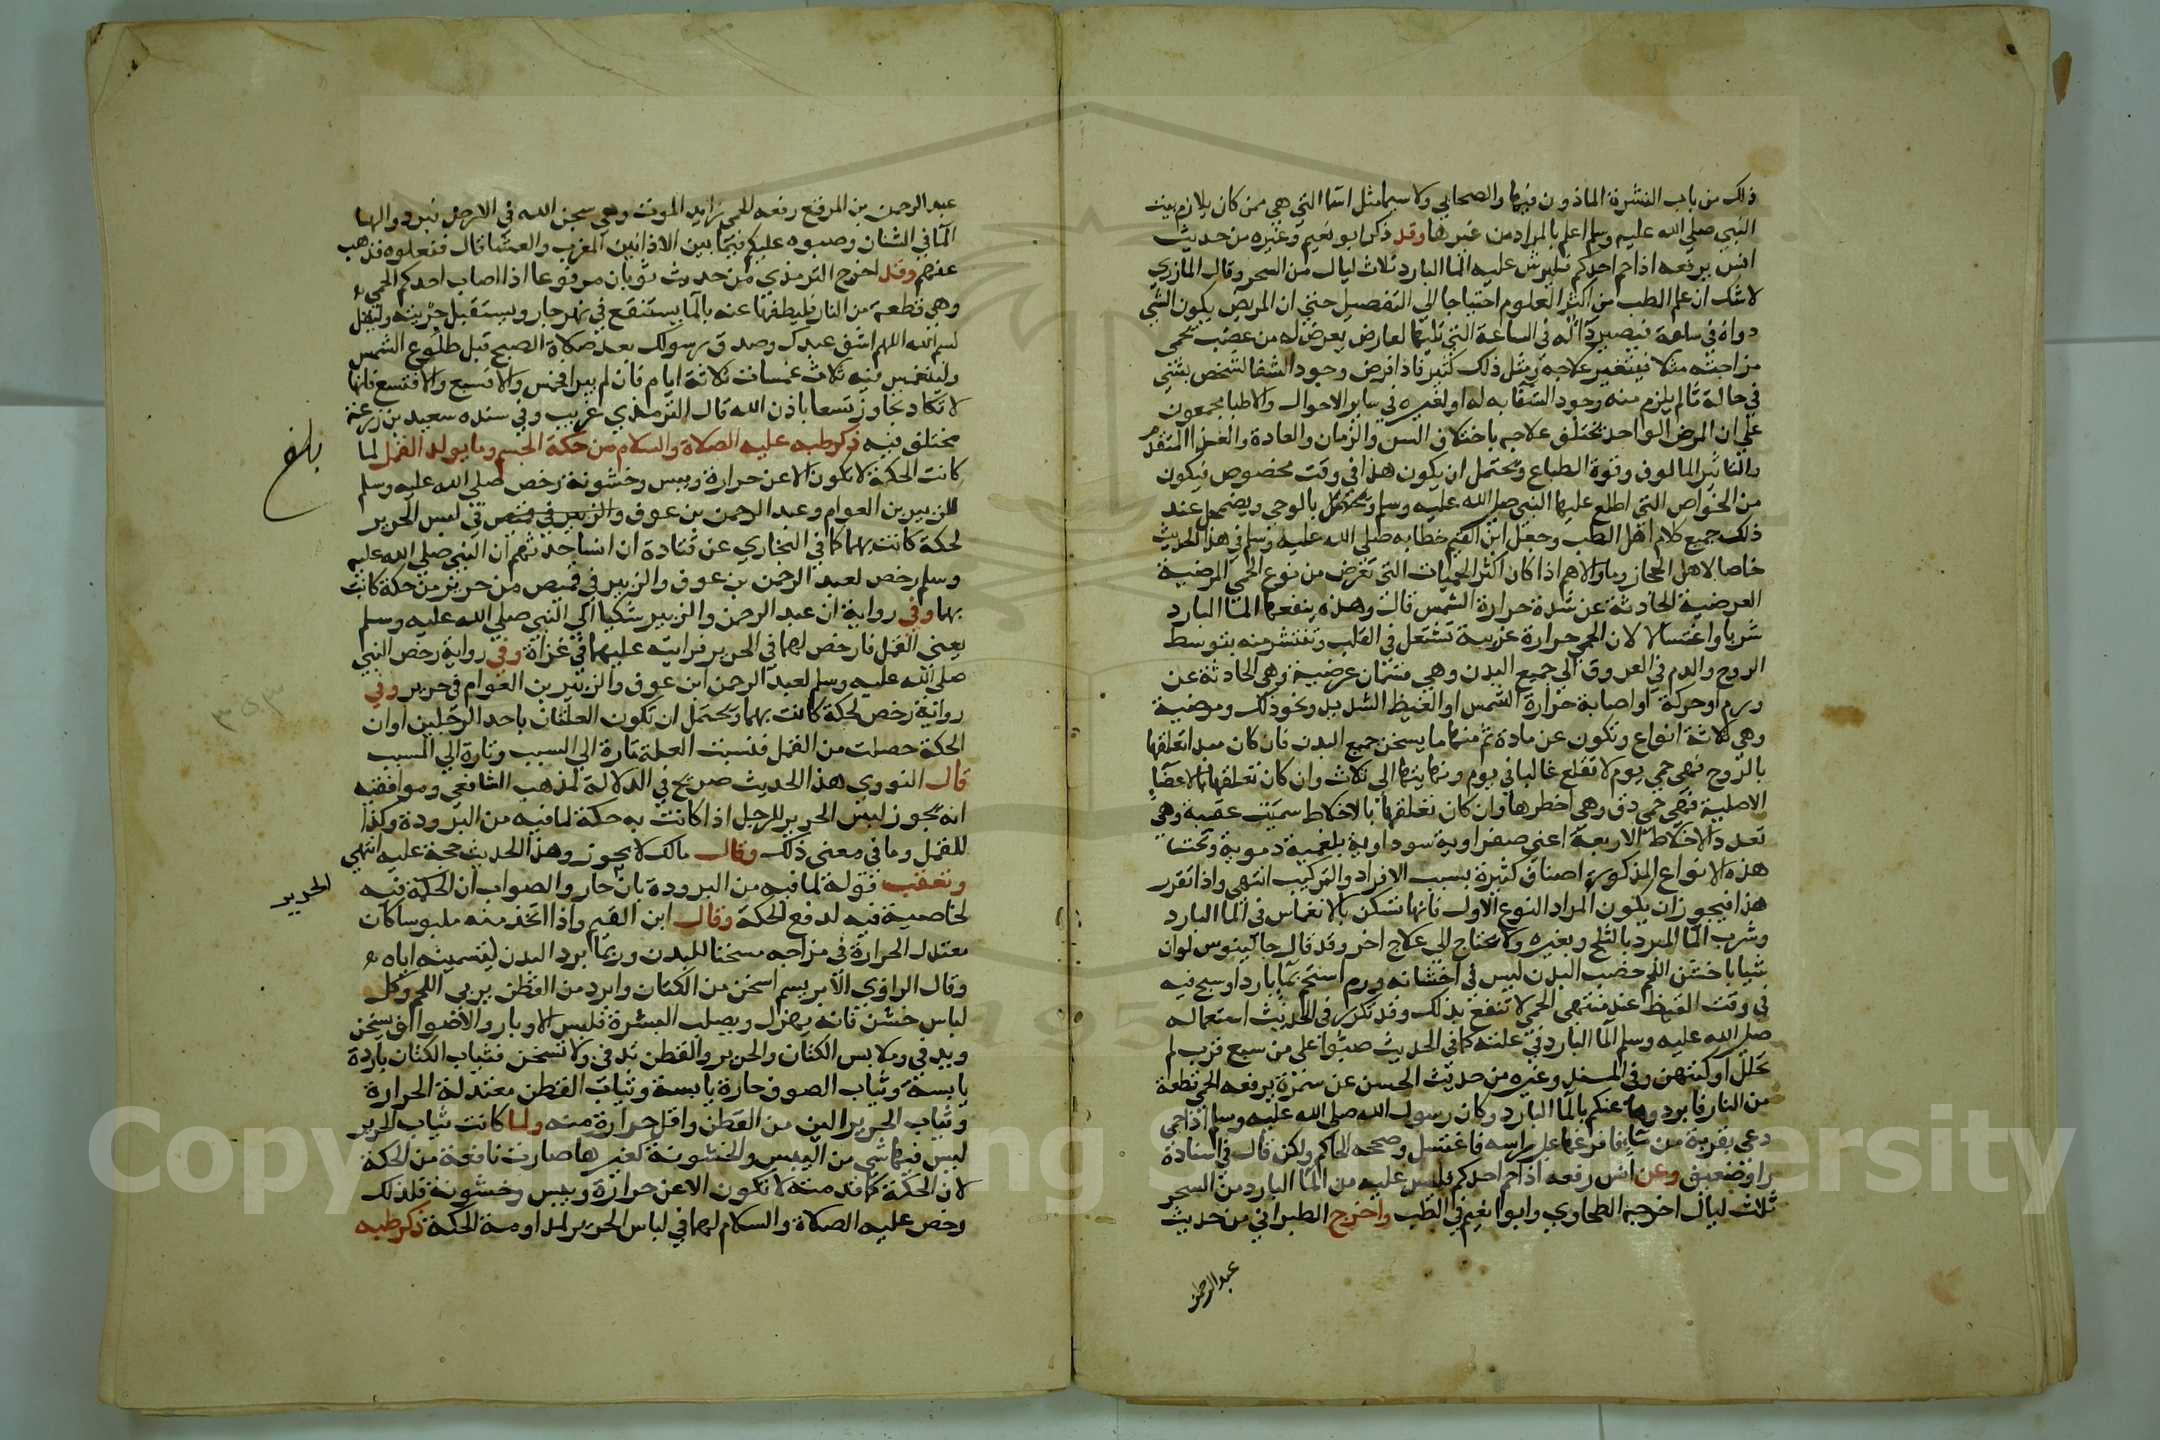 ذلك من باب النشرة الماذون فيها والصحابي ولا سيما مثل اسما التي هي ممن كان يلازم بيت
النبي صلى الله عليه وسلم اعلم بالمراد من غيرها وقد ذكر ابو نعيم وغيره من حديث
انس يرفعه اذا حم احدكم فليرش عليه الما البارد ثلاث ليال من السحر وقال المازري
لاشك ان علم الطب من اكثر العلوم احتياجا الي التفصيل حتي ان المريض يكون الشي
دواه في ساعة فيصير دا له في الساعة التي تليها لعارض يعرض له من غضب يحمي
مزاجه مثلا فيتغير علاجه ومثل ذلك كثير فاذا فرض وجود الشفا لشخص بشئ
في حالة ما لم يلزم منه وجود الشفا به له او لغيره في ساير الاحوال والاطبا مجمعون
علي ان المرض الواحد يختلف علاجه باختلاف السن والزمان والعادة والغذا المتقدم
والتاثير المالوف وقوة الطباع ويحتمل ان يكون هذا في وقت مخصوص فيكون
من الخواص التي اطلع عليها النبي صلى الله عليه وسلم بالوحي ويضمحل عند
ذلك جميع كلام اهل الطب وجعل ابن القيم خطابه صلى الله عليه وسلم في هذا الحديث
خاصا لاهل الحجاز وما والاهم اذا كان اكثر الحميات التي تعرض من نوع الحمي المرضية
العرضية الحادثة عن شدة حرارة الشمس قال وهذه ينفعها الما البارد
شربا واغتسالا لان الحمي حرارة غريبة تشتعل في القلب وتنتشر منه بتوسط
الروح والدم في العروق الي جميع البدن وهي قسمان عرضية وهي الحادثة عن
ورم او حركة او اصابة حرارة الشمس او القيظ الشديد ونحو ذلك ومرضية
وهي ثلاثة انواع وتكون عن مادة ثم منها ما يسخن جميع البدن فان كان مبدا تعلقها
بالروح فهي حمي يوم لا تقلع غالبا في يوم ونهايتها الي ثلاث وان كان تعلقها بالاعضا
الاصلية فهي حمي دق وهي اخطرها وان كان تعلقها بالاخلاط سميت عفنية وهي
بعدد الاخلاط الاربعة اعني صفراوية سوداوية بلغمية دموية وتحت
هذه الانواع المذكورة اصناف كثيرة بسبب الافراد والتركيب انتهي واذا تقرر
هذا فيجوز ان يكون المراد النوع الاول فانها تسكن بالانغماس في الما البارد
وشرب الما المبرد بالثلج وبغيره ولا يحتاج الي علاج اخر وقد قال جالينوس لو ان
شابا حسن اللحم خصب البدن ليس في احشائه ورم استحم بما بارد او سبح فيه
في وقت القيظ عند منتهي الحمي لانتفع بذلك وقد تكرر في الحديث استعماله
صلى الله عليه وسلم الما البارد في علته كما في الحديث صبوا علي من سبع قرب لم
تحلل اوكيتهن وفي المسند وغيره من حديث الحسن عن سمرة يرفعه الحمي قطعة
من النار فابردوها عنكم بالما البارد وكان رسول الله صلى الله عليه وسلم اذا حمي
دعي بقربة من ماء فافرغها علي راسه فاغتسل وصححه الحاكم ولكن قال في اسناده
راو ضعيف وعن انس رفعه اذا حم احدكم فليس عليه من الما البارد من السحر
ثلاث ليال اخرجه الطحاوي وابو نعيم في الطب واخرج الطبراني من حديث
عبد الرحمن
عبد الرحمن بن المرقع رفعه الحمي رايد الموت وهي سجن الله في الارض فبردوا لها
الما في الشنان وصبوه عليكم فيما بين الاذانين المغرب والعشا قال ففعلوه فذهب
عنهم وقد اخرج الترمذي من حديث ثوبان مرفوعا اذا اصاب احدكم الحمي
وهي قطعة من النار فليطفها عنه بالما يستنقع في نهر جار ويستقبل جريته وليقل
بسم الله اللهم اشف عبدك وصدق رسولك بعد صلاة الصبح قبل طلوع الشمس
ولينغمس فيه ثلاث غمسات ثلاثة ايام فان لم يبرا فخمس والا فسبع والا فتسع فانها
لا تكاد تجاوز تسعا باذن الله قال الترمذي غريب وفي سنده سعيد بن زرعة
مختلف فيه ذكر طبه عليه الصلاة والسلام من حكة الجسم وما يولد القمل لما
كانت الحكة لا تكون الا عن حرارة ويبس وخشونة رخص صلى الله عليه وسلم
للزبير بن العوام وعبد الرحمن بن عوف والزبير في قميص في لبس الحرير
لحكة كانت بهما كما في البخاري عن قتادة ان انسا حدثهم ان النبي صلى الله عليه
وسلم رخص لعبد الرحمن بن عوف والزبير في قميص من حرير من حكة كانت
بهما وفي رواية ان عبد الرحمن والزبير شكيا الي النبي صلى الله عليه وسلم
يعني القمل فارخص لهما في الحرير فرايته عليهما في غزاة وفي رواية رخص النبي
صلى الله عليه وسلم لعبد الرحمن ابن عوف والزبير بن العوام في حرير وفي
رواية رخص لحكة كانت بهما ويحتمل ان تكون العلتان باحد الرجلين او ان
الحكة حصلت من القمل فنسبت العلة تارة الي السبب وتارة الي المسبب
قال النووي هذا الحديث صريح في الدلالة لمذهب الشافعي وموافقته
انه يجوز لبس الحرير للرجل اذا كانت به حكة لما فيه من البرودة وكذا
للقمل وما في معني ذلك وقال مالك لا يجوز وهذا الحديث حجة عليه انتهي
وتعقب قوله لما فيه من البرودة بان حار والصواب ان الحكمة فيه
لخاصية فيه لدفع الحكة وقال ابن القيم واذا اتخذ منه ملبوسا كان
معتدل الحرارة في مزاجه مسخنا للبدن وربما برد البدن بتسمينه اياه
وقال الرازي الابريسم اسخن من الكتان وابرد من القطن يربي اللحم وكل
لباس خشن فانه يهزل ويصلب البشرة فلبس الاوبار والاصواف يسخن
ويدفي وملابس الكتان والحرير والقطن تدفي ولا تسخن فثياب الكتان باردة
يابسة وثياب الصوف حارة يابسة وثياب القطن معتدلة الحرارة
وثياب الحرير الين من القطن واقل حرارة منه ولما كانت ثياب الحرير
ليس فيها شي من اليبس والخشونة كغيرها صارت نافعة من الحكة
لان الحكة كما قدمته لا تكون الا عن حرارة ويبس وخشونة فلذلك
رخص عليه الصلاة والسلام لهما في لباس الحرير لمداومة الحكة ذكر طبه
بلغ
الحرير